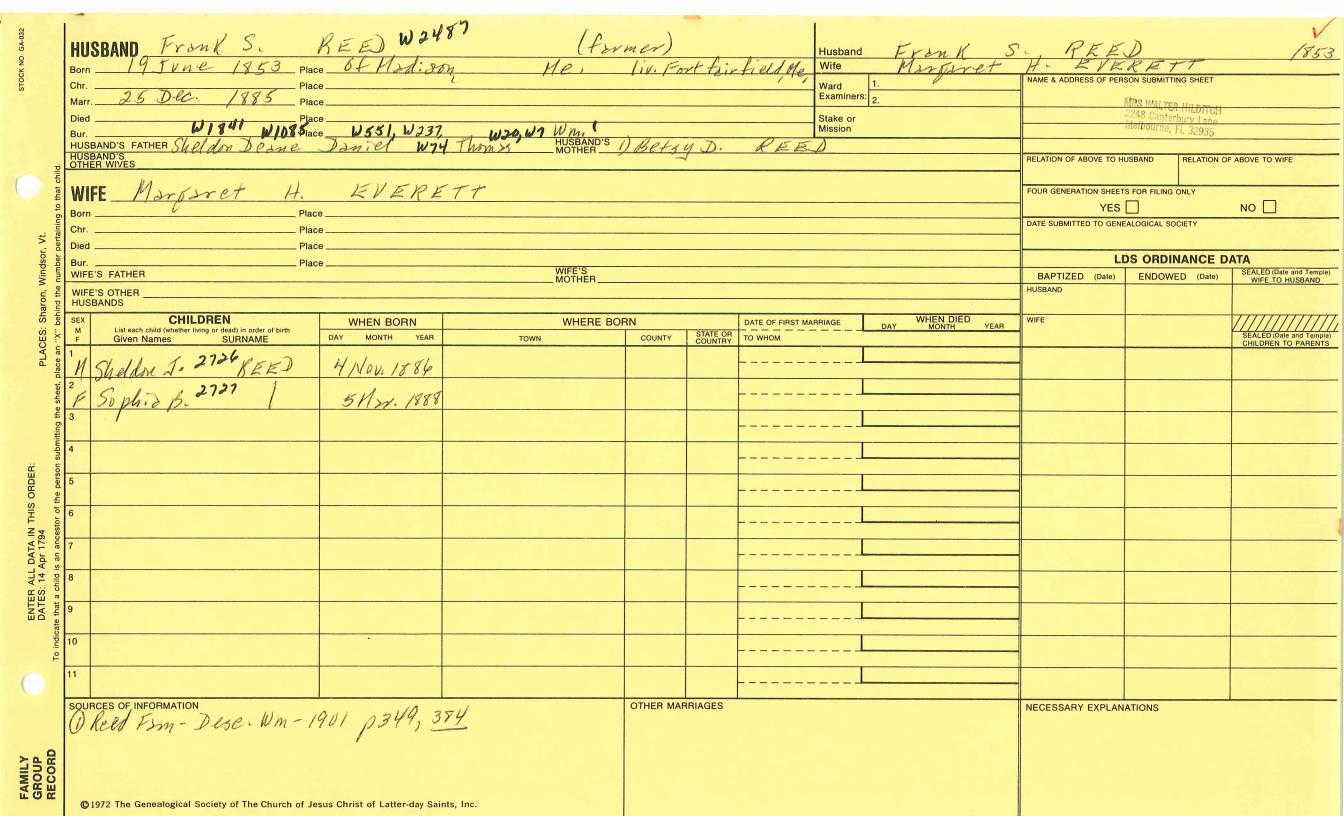 STOCK NO. GA-032
HUSBAND Frank S. REED W2487 (farmer)
Born 19 June 1853 Place of Madison, Me. liv. Fort fairfield, Me,
Chr. Place
Marr. 25 Dec. 1885 Place
Died Place
Bur. W1841 W1085 Place W551, W237, W20, W7 Wm.¹
HUSBAND'S FATHER Sheldon Deane Daniel W74 Thomas HUSBAND'S MOTHER 1) Betsy D. REED
HUSBAND'S OTHER WIVES
WIFE Margaret H. EVERETT
Born Place
Chr. Place
Died Place
Bur. Place
WIFE'S FATHER WIFE'S MOTHER
WIFE'S OTHER HUSBANDS
Husband Frank S. REED 1853
Wife Margaret H. EVERETT
Ward Examiners: 1.
2.
Stake or Mission
NAME & ADDRESS OF PERSON SUBMITTING SHEET
MRS WALTER HILDITCH
2248 Canterbury Lane
Melbourne, FL 32935
RELATION OF ABOVE TO HUSBAND RELATION OF ABOVE TO WIFE
FOUR GENERATION SHEETS FOR FILING ONLY
YES NO
DATE SUBMITTED TO GENEALOGICAL SOCIETY
LDS ORDINANCE DATA
BAPTIZED (Date) ENDOWED (Date) SEALED (Date and Temple) WIFE TO HUSBAND
HUSBAND
WIFE
SEALED (Date and Temple) CHILDREN TO PARENTS
SEX M F
CHILDREN
List each child (whether living or dead) in order of birth
Given Names SURNAME
WHEN BORN
DAY MONTH YEAR
WHERE BORN
TOWN COUNTY STATE OR COUNTRY
DATE OF FIRST MARRIAGE
TO WHOM
WHEN DIED
DAY MONTH YEAR
1 M Sheldon J. 2726 REED 4 Nov. 1886
2 F Sophia B. 2727 | 5 Mar. 1888
3
4
5
6
7
8
9
10
11
SOURCES OF INFORMATION
① Reed Fam - Desc. Wm - 1901 p349, 384
OTHER MARRIAGES
NECESSARY EXPLANATIONS
©1972 The Genealogical Society of The Church of Jesus Christ of Latter-day Saints, Inc.
FAMILY GROUP RECORD
ENTER ALL DATA IN THIS ORDER:
DATES: 14 Apr 1794
PLACES: Sharon, Windsor, Vt.
To indicate that a child is an ancestor of the person submitting the sheet, place an "X" behind the number pertaining to that child.